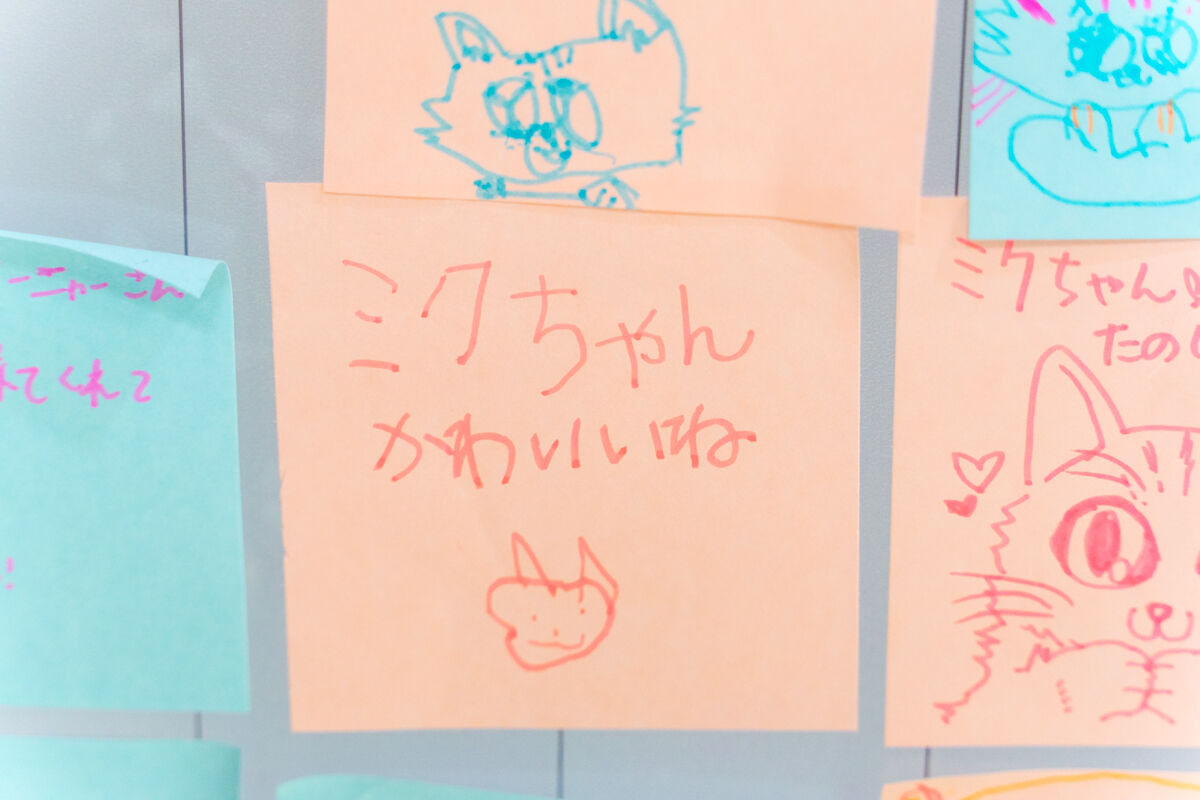 ーニャーさん
来てくれて
!
ミクちゃん
かわいいね
ミクちゃん
たのし